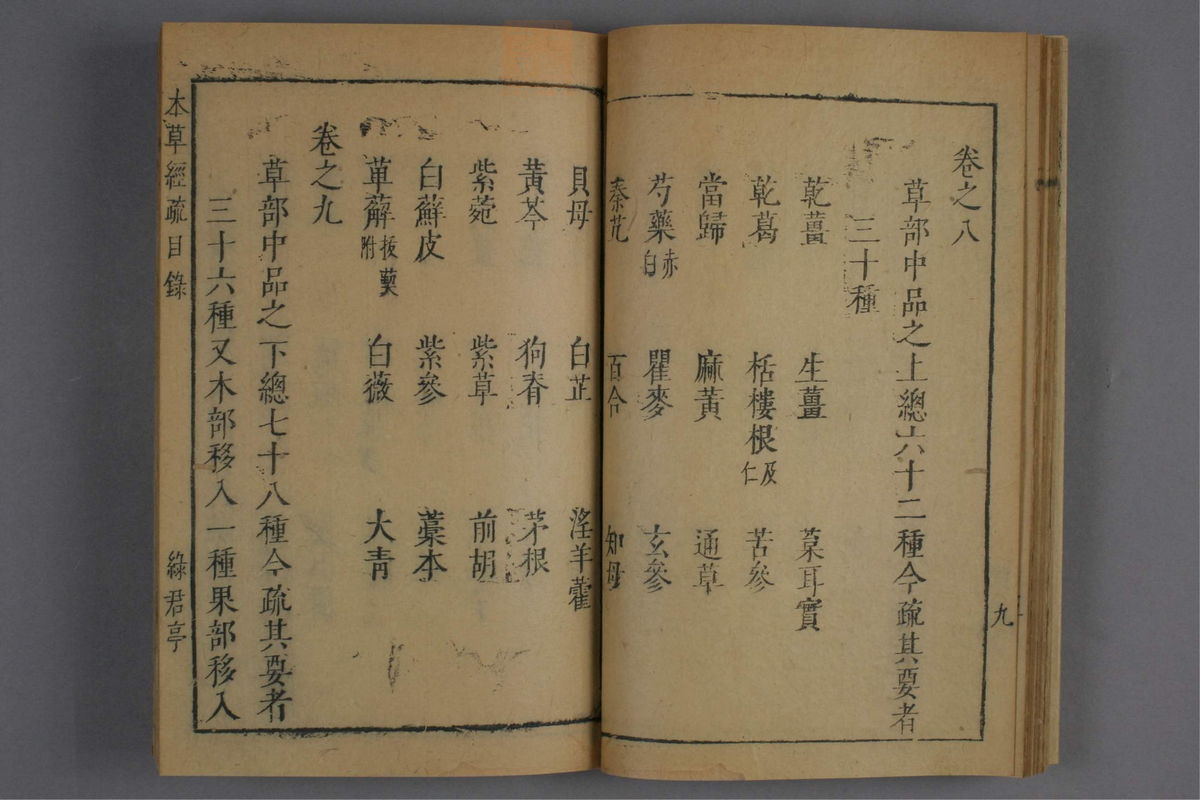 卷之八
草部中品之上總六十二種今疏其要者
三十種
乾薑 生薑 葈耳實
乾葛 栝樓根及仁 苦參
當歸 麻黃 通草
芍藥赤白 瞿麥 玄參
秦艽 百合 知母
九
貝母 白芷 淫羊藿
黃芩 狗脊 茅根
紫菀 紫草 前胡
白蘚皮 紫參 藁本
萆薢菝葜附 白薇 大青
卷之九
草部中品之下總七十八種今疏其要者
三十六種又木部移入一種果部移入
本草經疏目錄
綠君亭